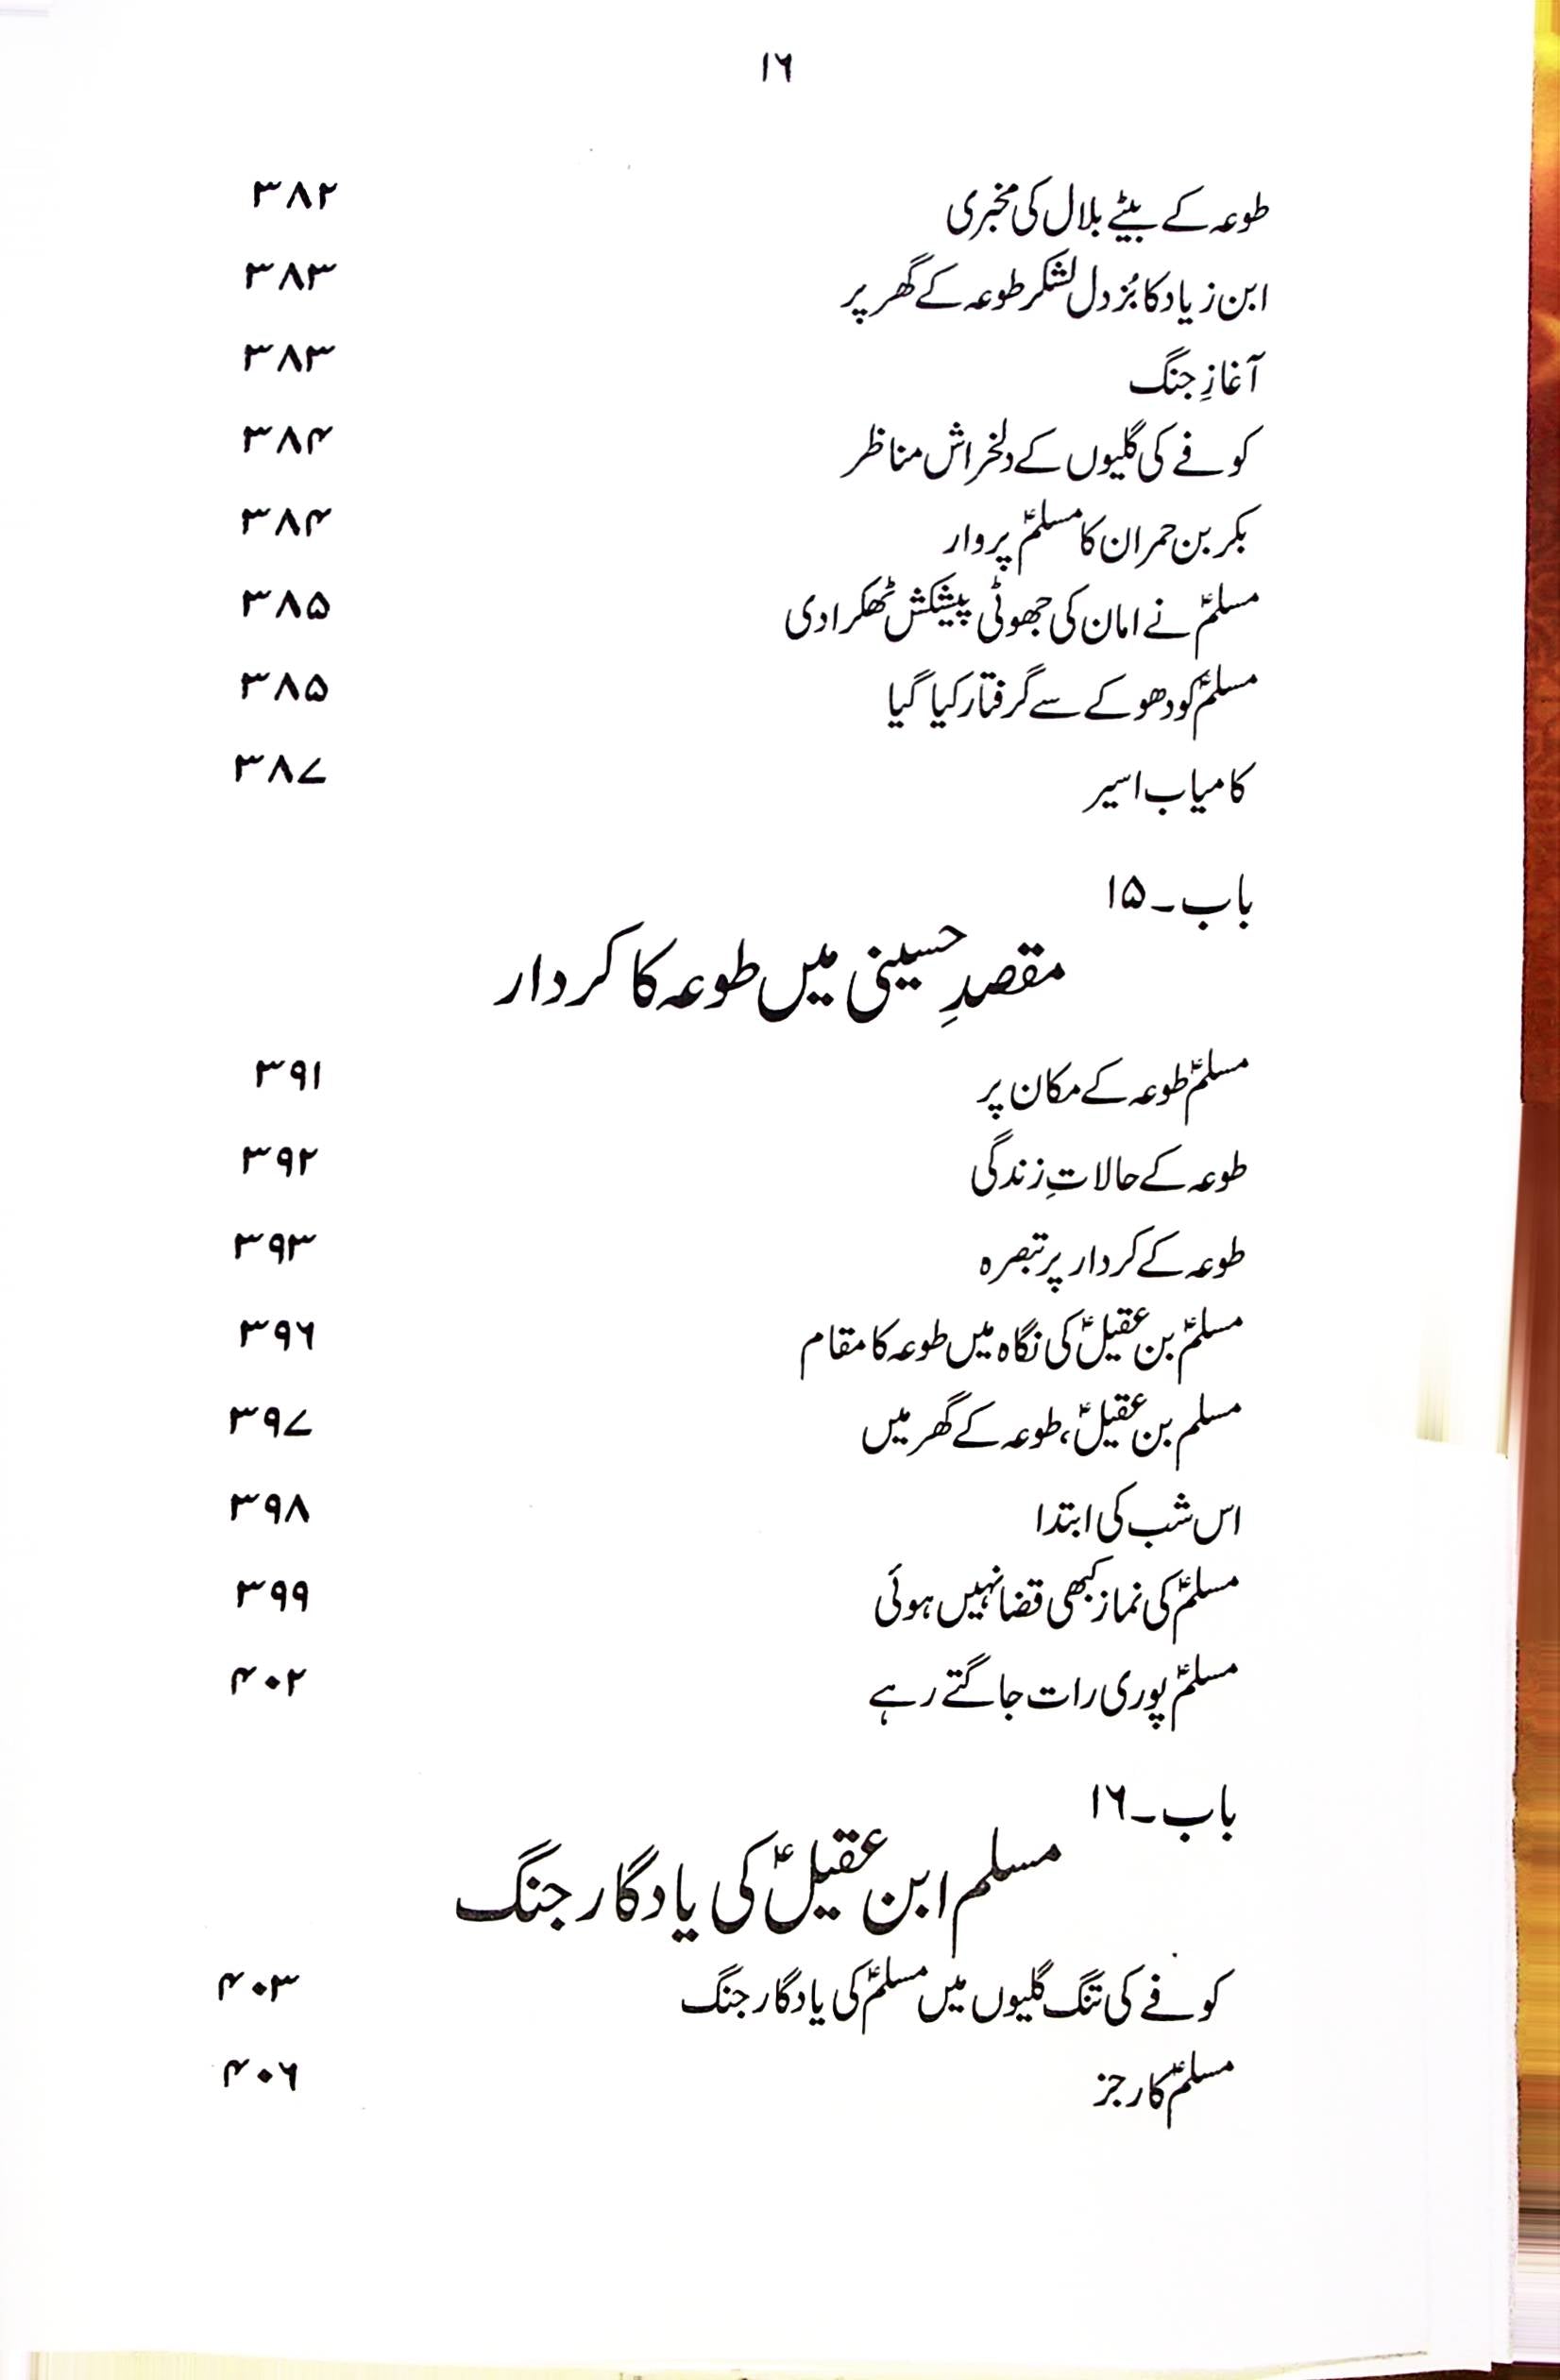 ۱۶
طوعہ کے بیٹے بلال کی مخبری ۳۸۲
ابن زیاد کا بُزدل لشکر طوعہ کے گھر پر ۳۸۳
آغازِ جنگ ۳۸۳
کوفے کی گلیوں کے دلخراش مناظر ۳۸۴
بکر بن حمران کا مسلمؑ پر وار ۳۸۴
مسلمؑ نے امان کی جھوٹی پیشکش ٹھکرا دی ۳۸۵
مسلمؑ کو دھوکے سے گرفتار کیا گیا ۳۸۵
کامیاب اسیر ۳۸۷
باب۔۱۵
مقصدِ حسینی میں طوعہ کا کردار
مسلمؑ طوعہ کے مکان پر ۳۹۱
طوعہ کے حالاتِ زندگی ۳۹۲
طوعہ کے کردار پر تبصرہ ۳۹۳
مسلمؑ بن عقیلؑ کی نگاہ میں طوعہ کا مقام ۳۹۶
مسلم بن عقیلؑ، طوعہ کے گھر میں ۳۹۷
اس شب کی ابتدا ۳۹۸
مسلمؑ کی نماز کبھی قضا نہیں ہوئی ۳۹۹
مسلمؑ پوری رات جاگتے رہے ۴۰۲
باب۔۱۶
مسلم ابن عقیلؑ کی یادگار جنگ
کوفے کی تنگ گلیوں میں مسلمؑ کی یادگار جنگ ۴۰۳
مسلمؑ کا رجز ۴۰۶